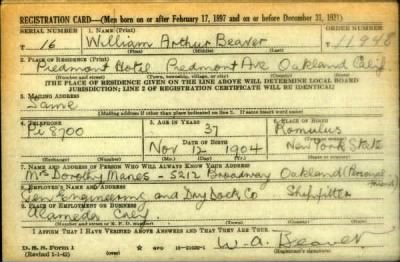 REGISTRATION CARD—(Men born on or after February 17, 1897 and on or before December 31, 1921)
SERIAL NUMBER 1. NAME (Print) ORDER NUMBER
T 16 William Arthur Beaver
(First) (Middle) (Last)
2. PLACE OF RESIDENCE (Print)
Piedmont Hotel Piedmont Ave Oakland Calif
(Number and street) (Town, township, village, or city) (County) (State)
[THE PLACE OF RESIDENCE GIVEN ON THE LINE ABOVE WILL DETERMINE LOCAL BOARD
JURISDICTION; LINE 2 OF REGISTRATION CERTIFICATE WILL BE IDENTICAL]
3. MAILING ADDRESS
Same
[Mailing address if other than place indicated on line 2. If same insert word same]
4. TELEPHONE 5. AGE IN YEARS 6. PLACE OF BIRTH
Pi 8700 37 Romulus
DATE OF BIRTH (Town or county)
Nov 12 1904 New York State
(Exchange) (Number) (Mo.) (Day) (Yr.) (State or country)
7. NAME AND ADDRESS OF PERSON WHO WILL ALWAYS KNOW YOUR ADDRESS
Mrs Dorothy Manes - 5212 Broadway Oakland (Personal friend)
8. EMPLOYER'S NAME AND ADDRESS
Gen Engineering and Dry Dock Co Shipfitter
9. PLACE OF EMPLOYMENT OR BUSINESS
Alameda Calif
I AFFIRM THAT I HAVE VERIFIED ABOVE ANSWERS AND THAT THEY ARE TRUE.
D. S. S. Form 1
(Revised 1-1-42) (over) W. A. Beaver